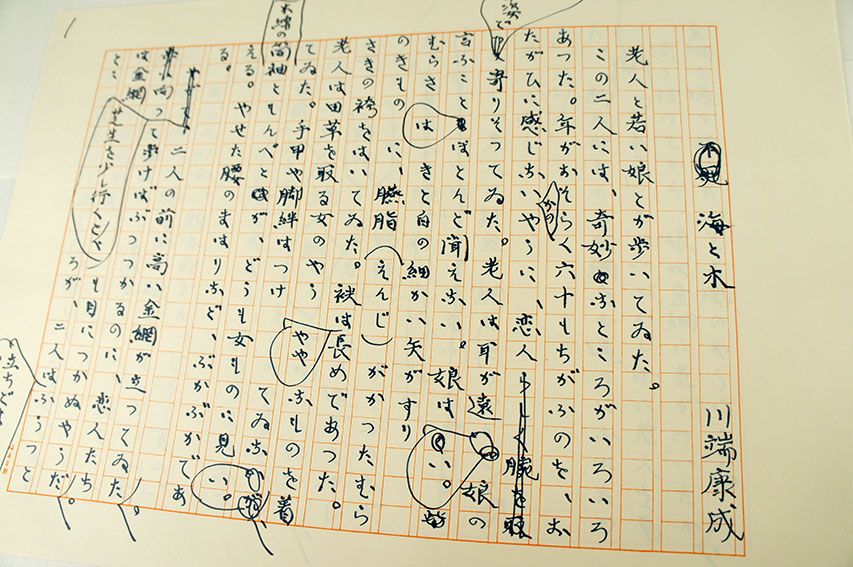 不死 海と木 川端康成
老人と若い娘とが歩いてゐた。
この二人には、奇妙なところがいろいろ
あつた。年がおそらく六十もちがふのを、お
かのたがひに感じないやうに、恋人らしく腕を取
姿で寄りそつてゐた。老人は耳が遠い。娘の
言ふことはほとんど聞えない。娘は
むらさきと白の細かい矢がすり
のきものに、臙脂(えんじ)がかつたむら
さきの袴をはいてゐた。袂は長めであつた。
老人は田草を取る女のやうなものを着
てゐた。手甲や脚絆はつけてゐない
木綿の筒袖ともんぺとが、どうも女ものに見
える。やせた腰のまはりなど、ぶかぶかであ
る。
二人の前に高い金網が立つてゐた。
芝生を少し行くと
歩けばぶつつかるのに、恋人たち
は金網も目につかぬやうだ。
ろが、二人はふうつと
立ちどま